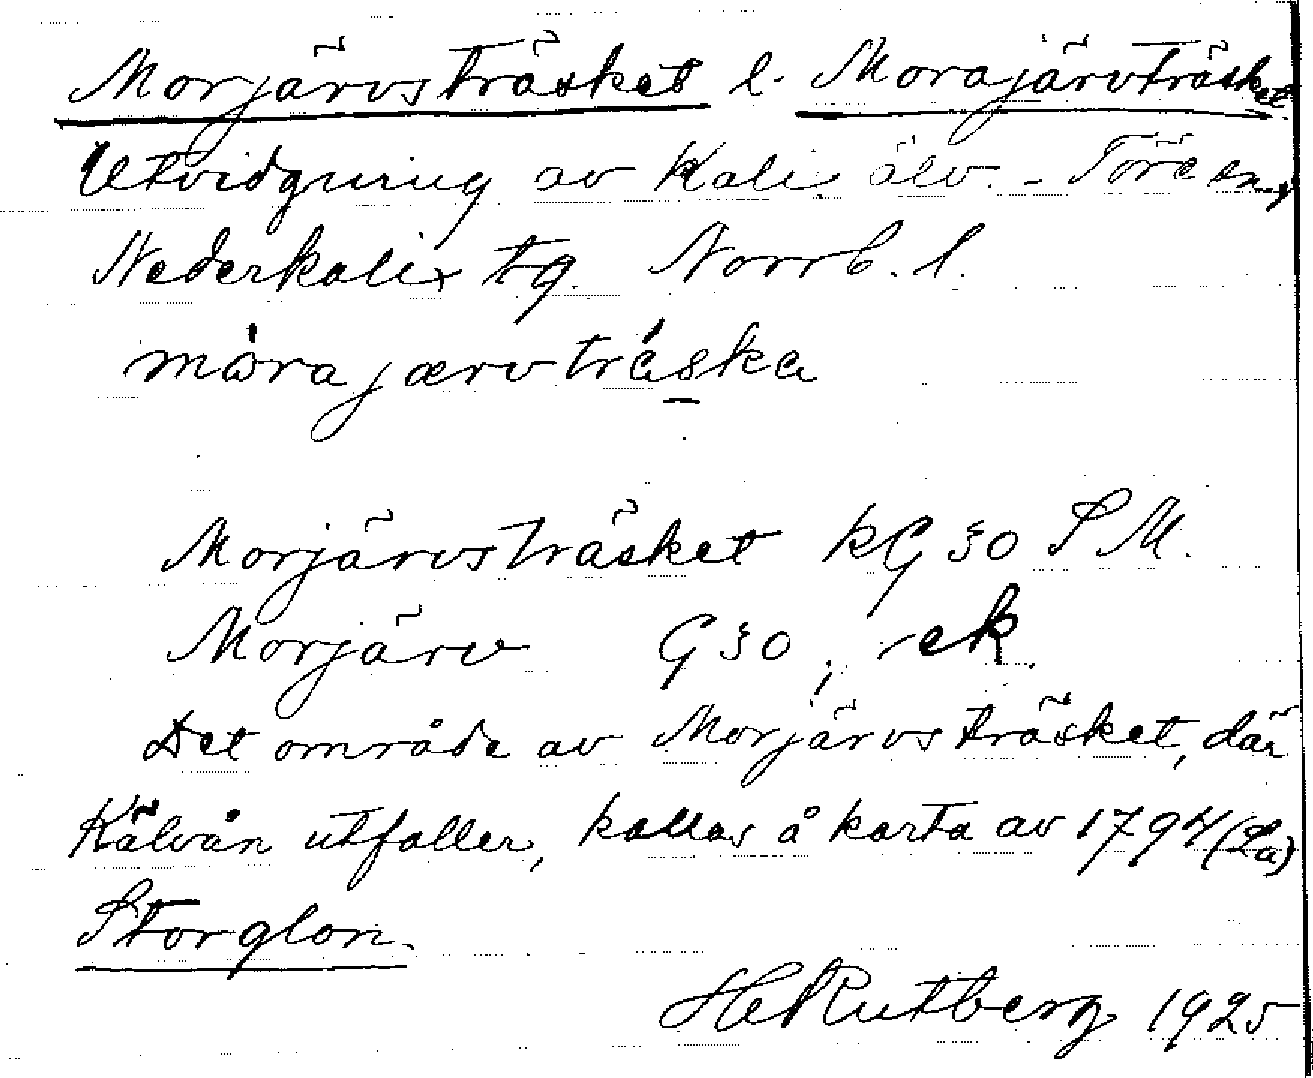 Morjärvsträsket l. Morajärvträsket
Utvidgning av Kalix älv. - Töre sn,
Nederkalix tg. Norrb. l.
mòrajærvtráska
Morjärvsträsket kG 30 S M.
Morjärv G 30, ek.
Det område av Morjärvsträsket, där
Kälvån utfaller, kallas å karta av 1794 (La)
Storglon.
HeRutberg 1925